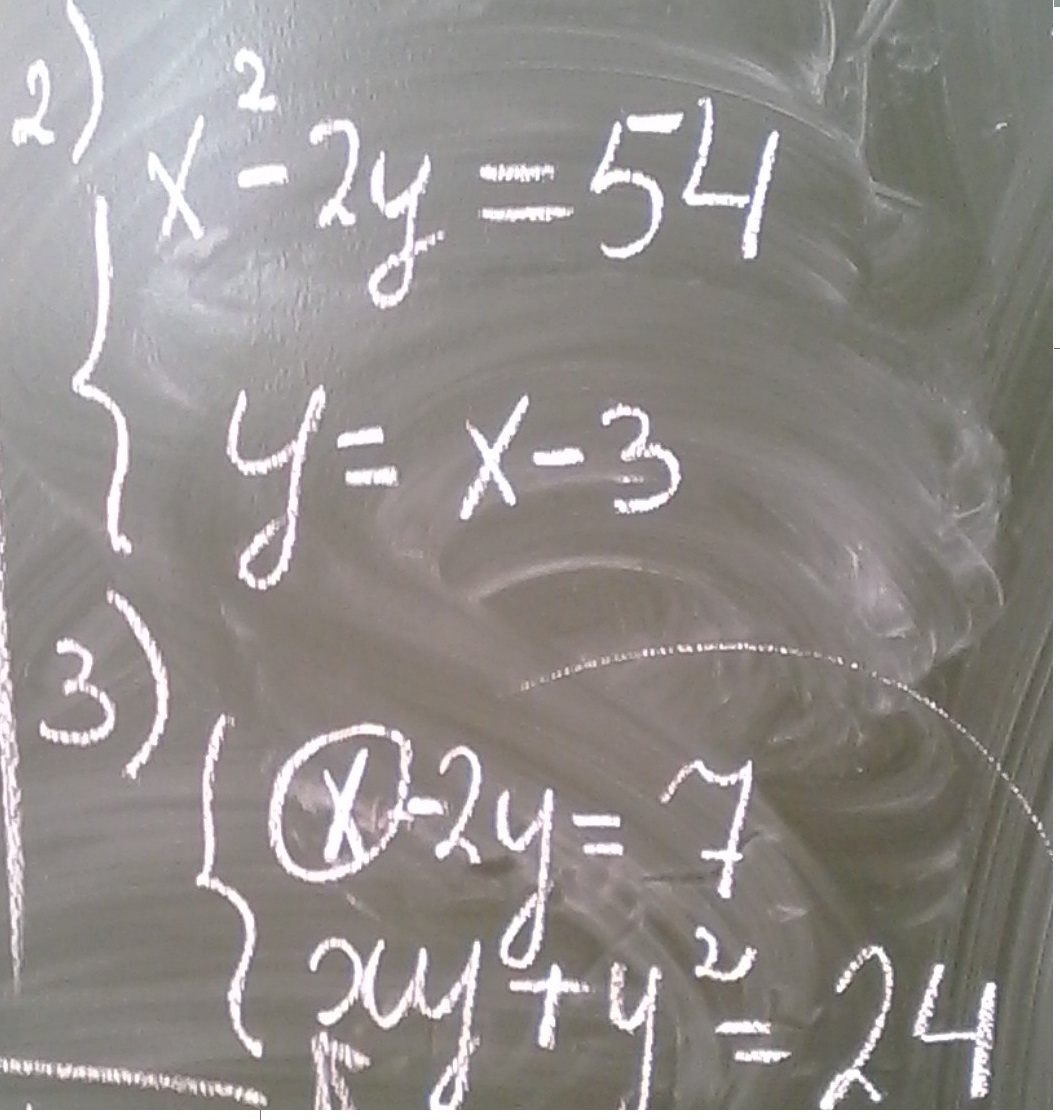 2)
x² - 2y = 54
y = x - 3
3)
x - 2y = 7
xy + y² = 24